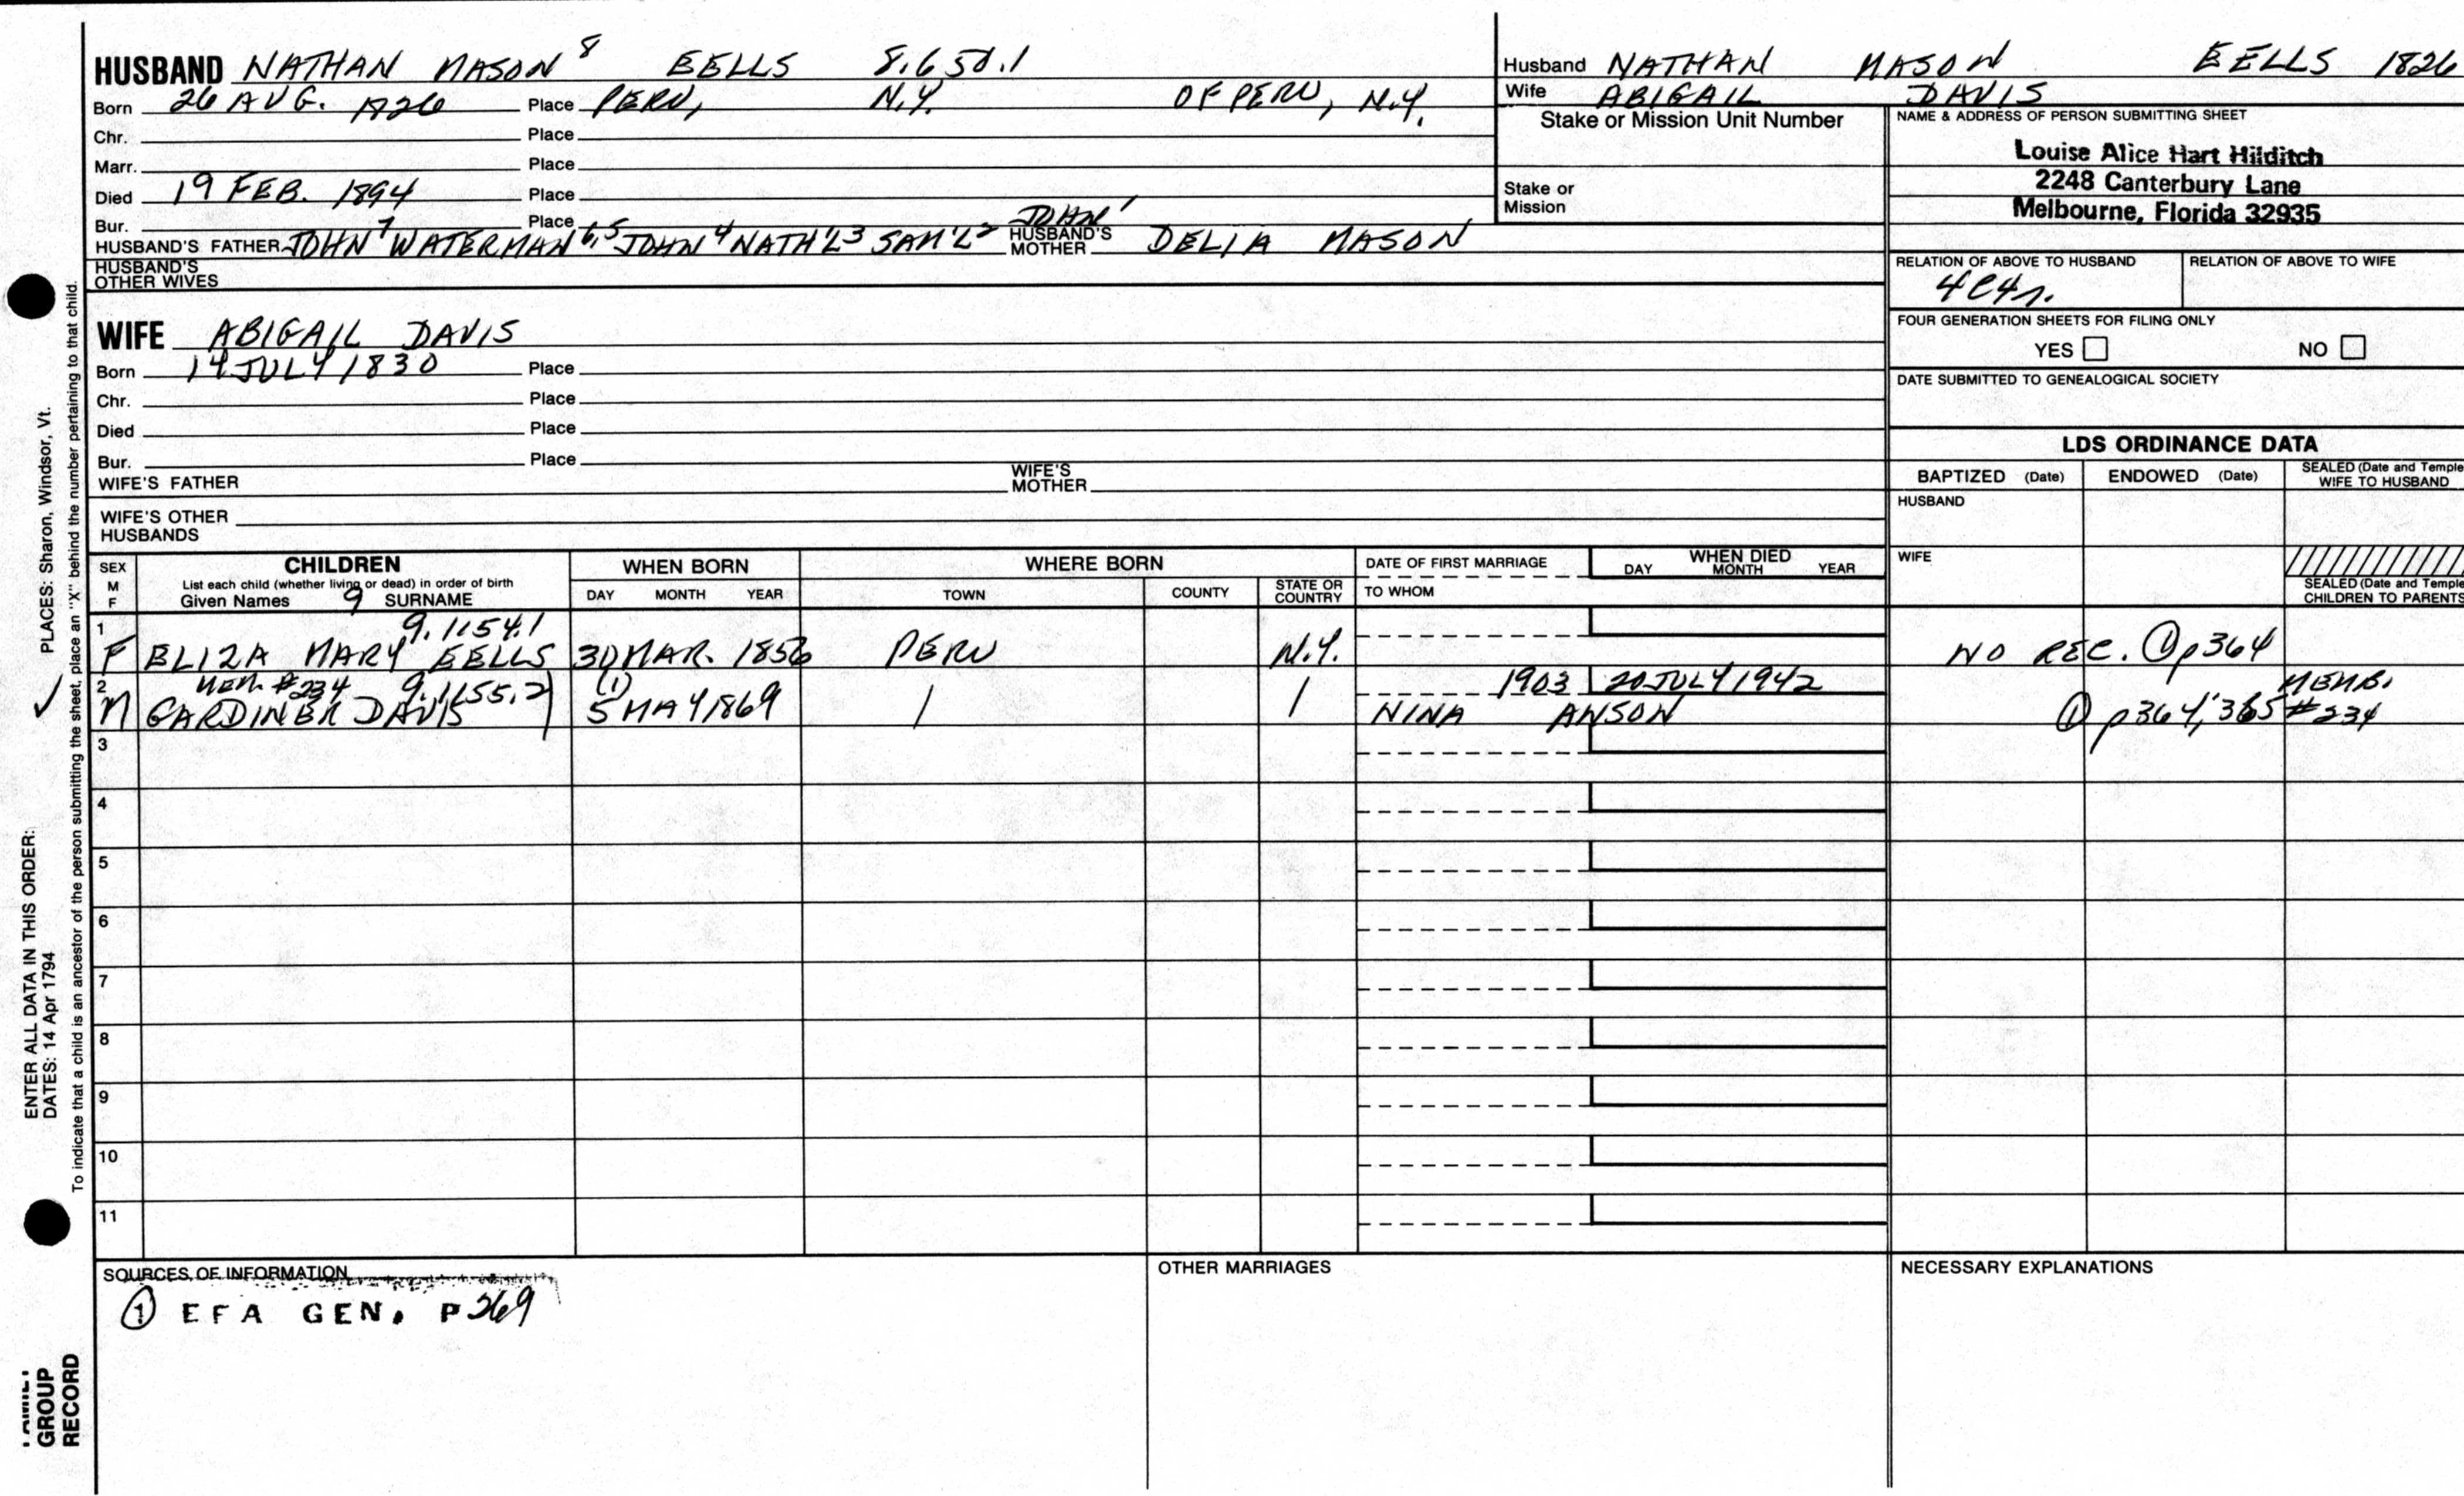 HUSBAND NATHAN MASON 8 EELLS 8.650.1
Born 26 AUG. 1826 Place PERU, N.Y. OF PERU, N.Y.
Chr. Place
Marr. Place
Died 19 FEB. 1894 Place
Bur. Place
HUSBAND'S FATHER JOHN 7 WATERMAN 6,5 JOHN 4 NATH'L 3 SAM'L 2 JOHN 1 HUSBAND'S MOTHER DELIA MASON
HUSBAND'S OTHER WIVES
WIFE ABIGAIL DAVIS
Born 14 JULY 1830 Place
Chr. Place
Died Place
Bur. Place
WIFE'S FATHER WIFE'S MOTHER
WIFE'S OTHER HUSBANDS
Husband NATHAN MASON EELLS 1826
Wife ABIGAIL DAVIS
Stake or Mission Unit Number
Stake or Mission
NAME & ADDRESS OF PERSON SUBMITTING SHEET
Louise Alice Hart Hilditch
2248 Canterbury Lane
Melbourne, Florida 32935
RELATION OF ABOVE TO HUSBAND RELATION OF ABOVE TO WIFE
4C4r.
FOUR GENERATION SHEETS FOR FILING ONLY
YES NO
DATE SUBMITTED TO GENEALOGICAL SOCIETY
LDS ORDINANCE DATA
BAPTIZED (Date) ENDOWED (Date) SEALED (Date and Temple WIFE TO HUSBAND
HUSBAND
WIFE
SEALED (Date and Temple CHILDREN TO PARENTS
SEX M F
CHILDREN
List each child (whether living or dead) in order of birth
Given Names 9 SURNAME
WHEN BORN
DAY MONTH YEAR
WHERE BORN
TOWN COUNTY STATE OR COUNTRY
DATE OF FIRST MARRIAGE
TO WHOM
WHEN DIED
DAY MONTH YEAR
1 9.1154.1
F ELIZA MARY EELLS 30 MAR. PERU N.Y. NO REC. ① p364
2 MEM. #234 9.1155.2) (1) 1903 20 JULY 1942 MEMB.
M GARDINER DAVIS 5 MAY 1869 / / NINA ANSON ① p364, 365 #234
3
4
5
6
7
8
9
10
11
SOURCES OF INFORMATION OTHER MARRIAGES NECESSARY EXPLANATIONS
① EFA GEN. P269
PLACES: Sharon, Windsor, Vt.
ENTER ALL DATA IN THIS ORDER:
DATES: 14 Apr 1794
To indicate that a child is an ancestor of the person submitting the sheet, place an "X" behind the number pertaining to that child.
GROUP
RECORD